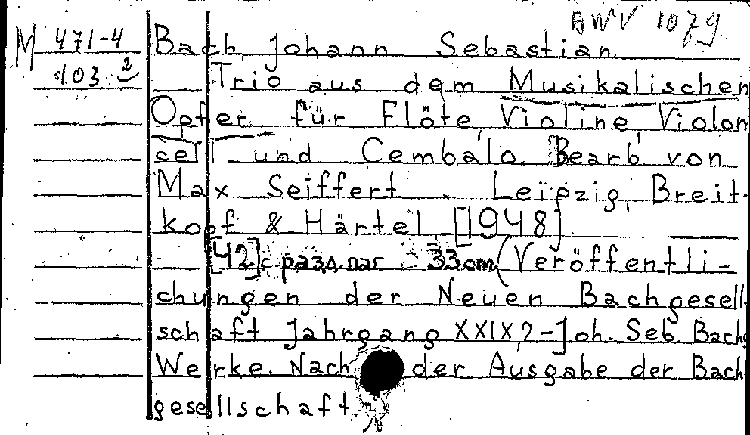 BWV 1079
M 471-4
103 2
Bach, Johann Sebastian
Trio aus dem Musikalischen
Opfer für Flöte, Violine, Violon
cell und Cembalo. Bearb von
Max Seiffert. Leipzig, Breit-
kopf & Härtel, [1948]
[42] с разд. паг. 33 cm (Veröffentli-
chungen der Neuen Bachgesell
schaft Jahrgang XXIX, 2 - Joh. Seb. Bachs
Werke. Nach der Ausgabe der Bach
gesellschaft